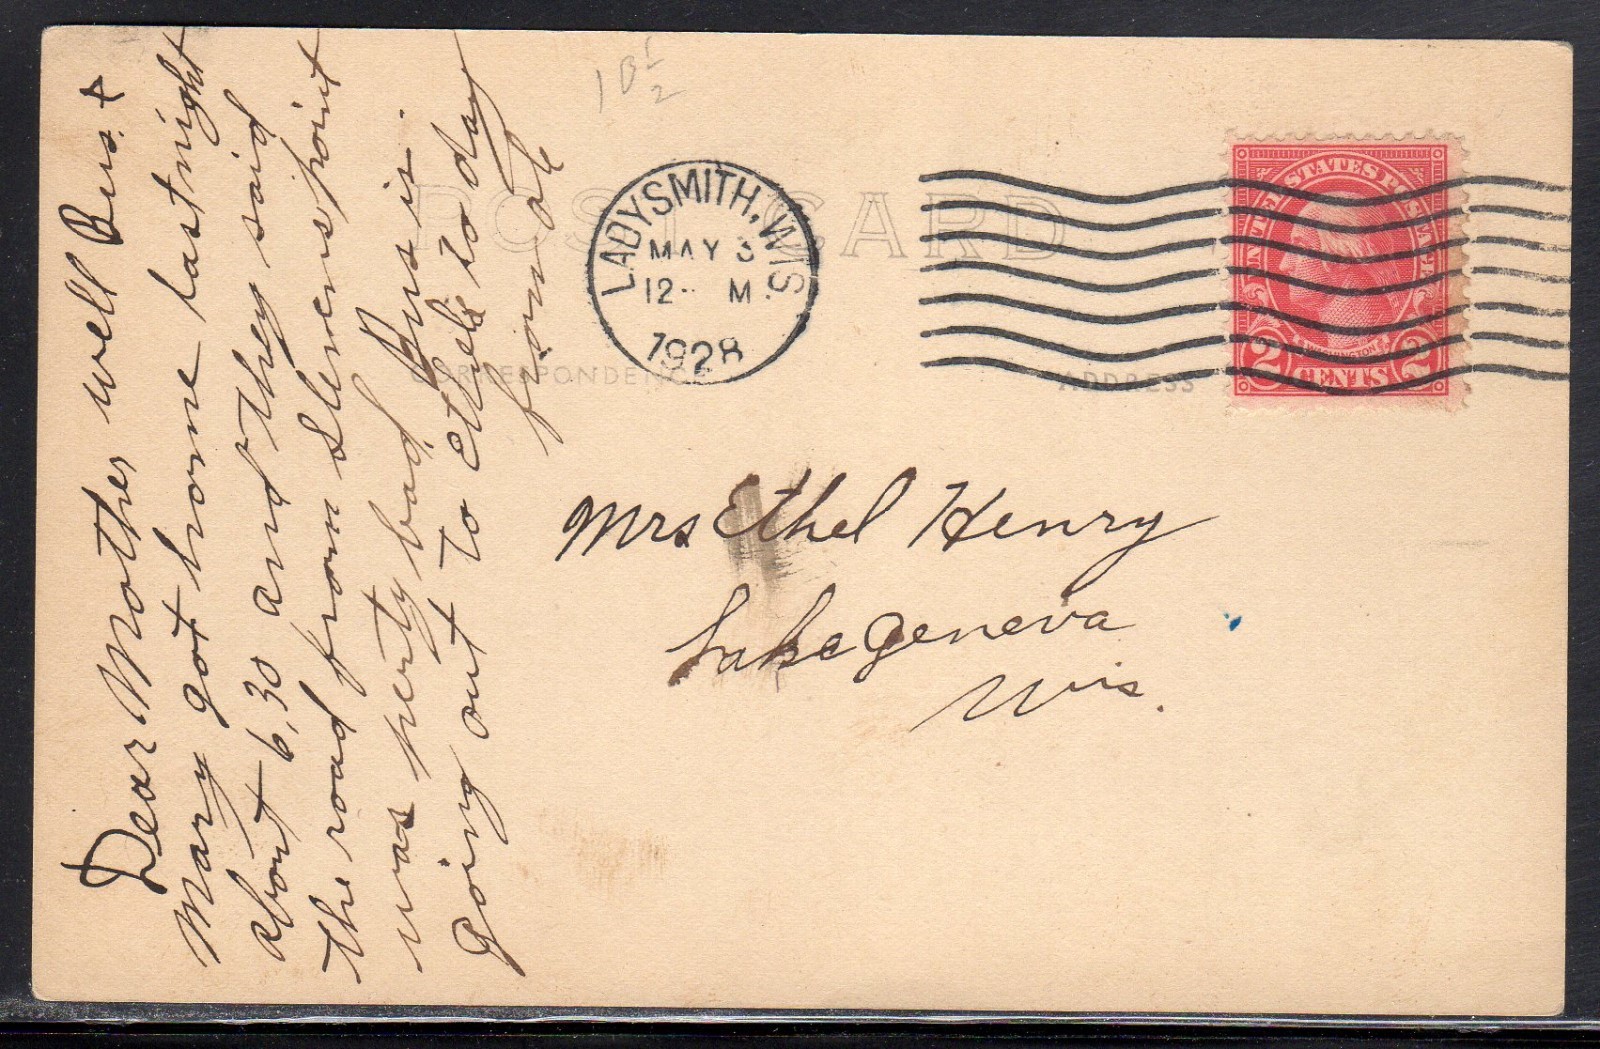 Dear Mother well Bus. +
Mary got home last night
about 6,30 and they said
the road from Stevens point
was perty bad, Bus is
going out to Ethels to day
from ok
10 1/2
POST CARD
CORRESPONDENCE
ADDRESS
LADYSMITH, WIS.
MAY 3
12 M
1928
UNITED STATES POSTAGE
WASHINGTON
2 CENTS 2
Mrs Ethel Henry
Lake geneva
Wis.